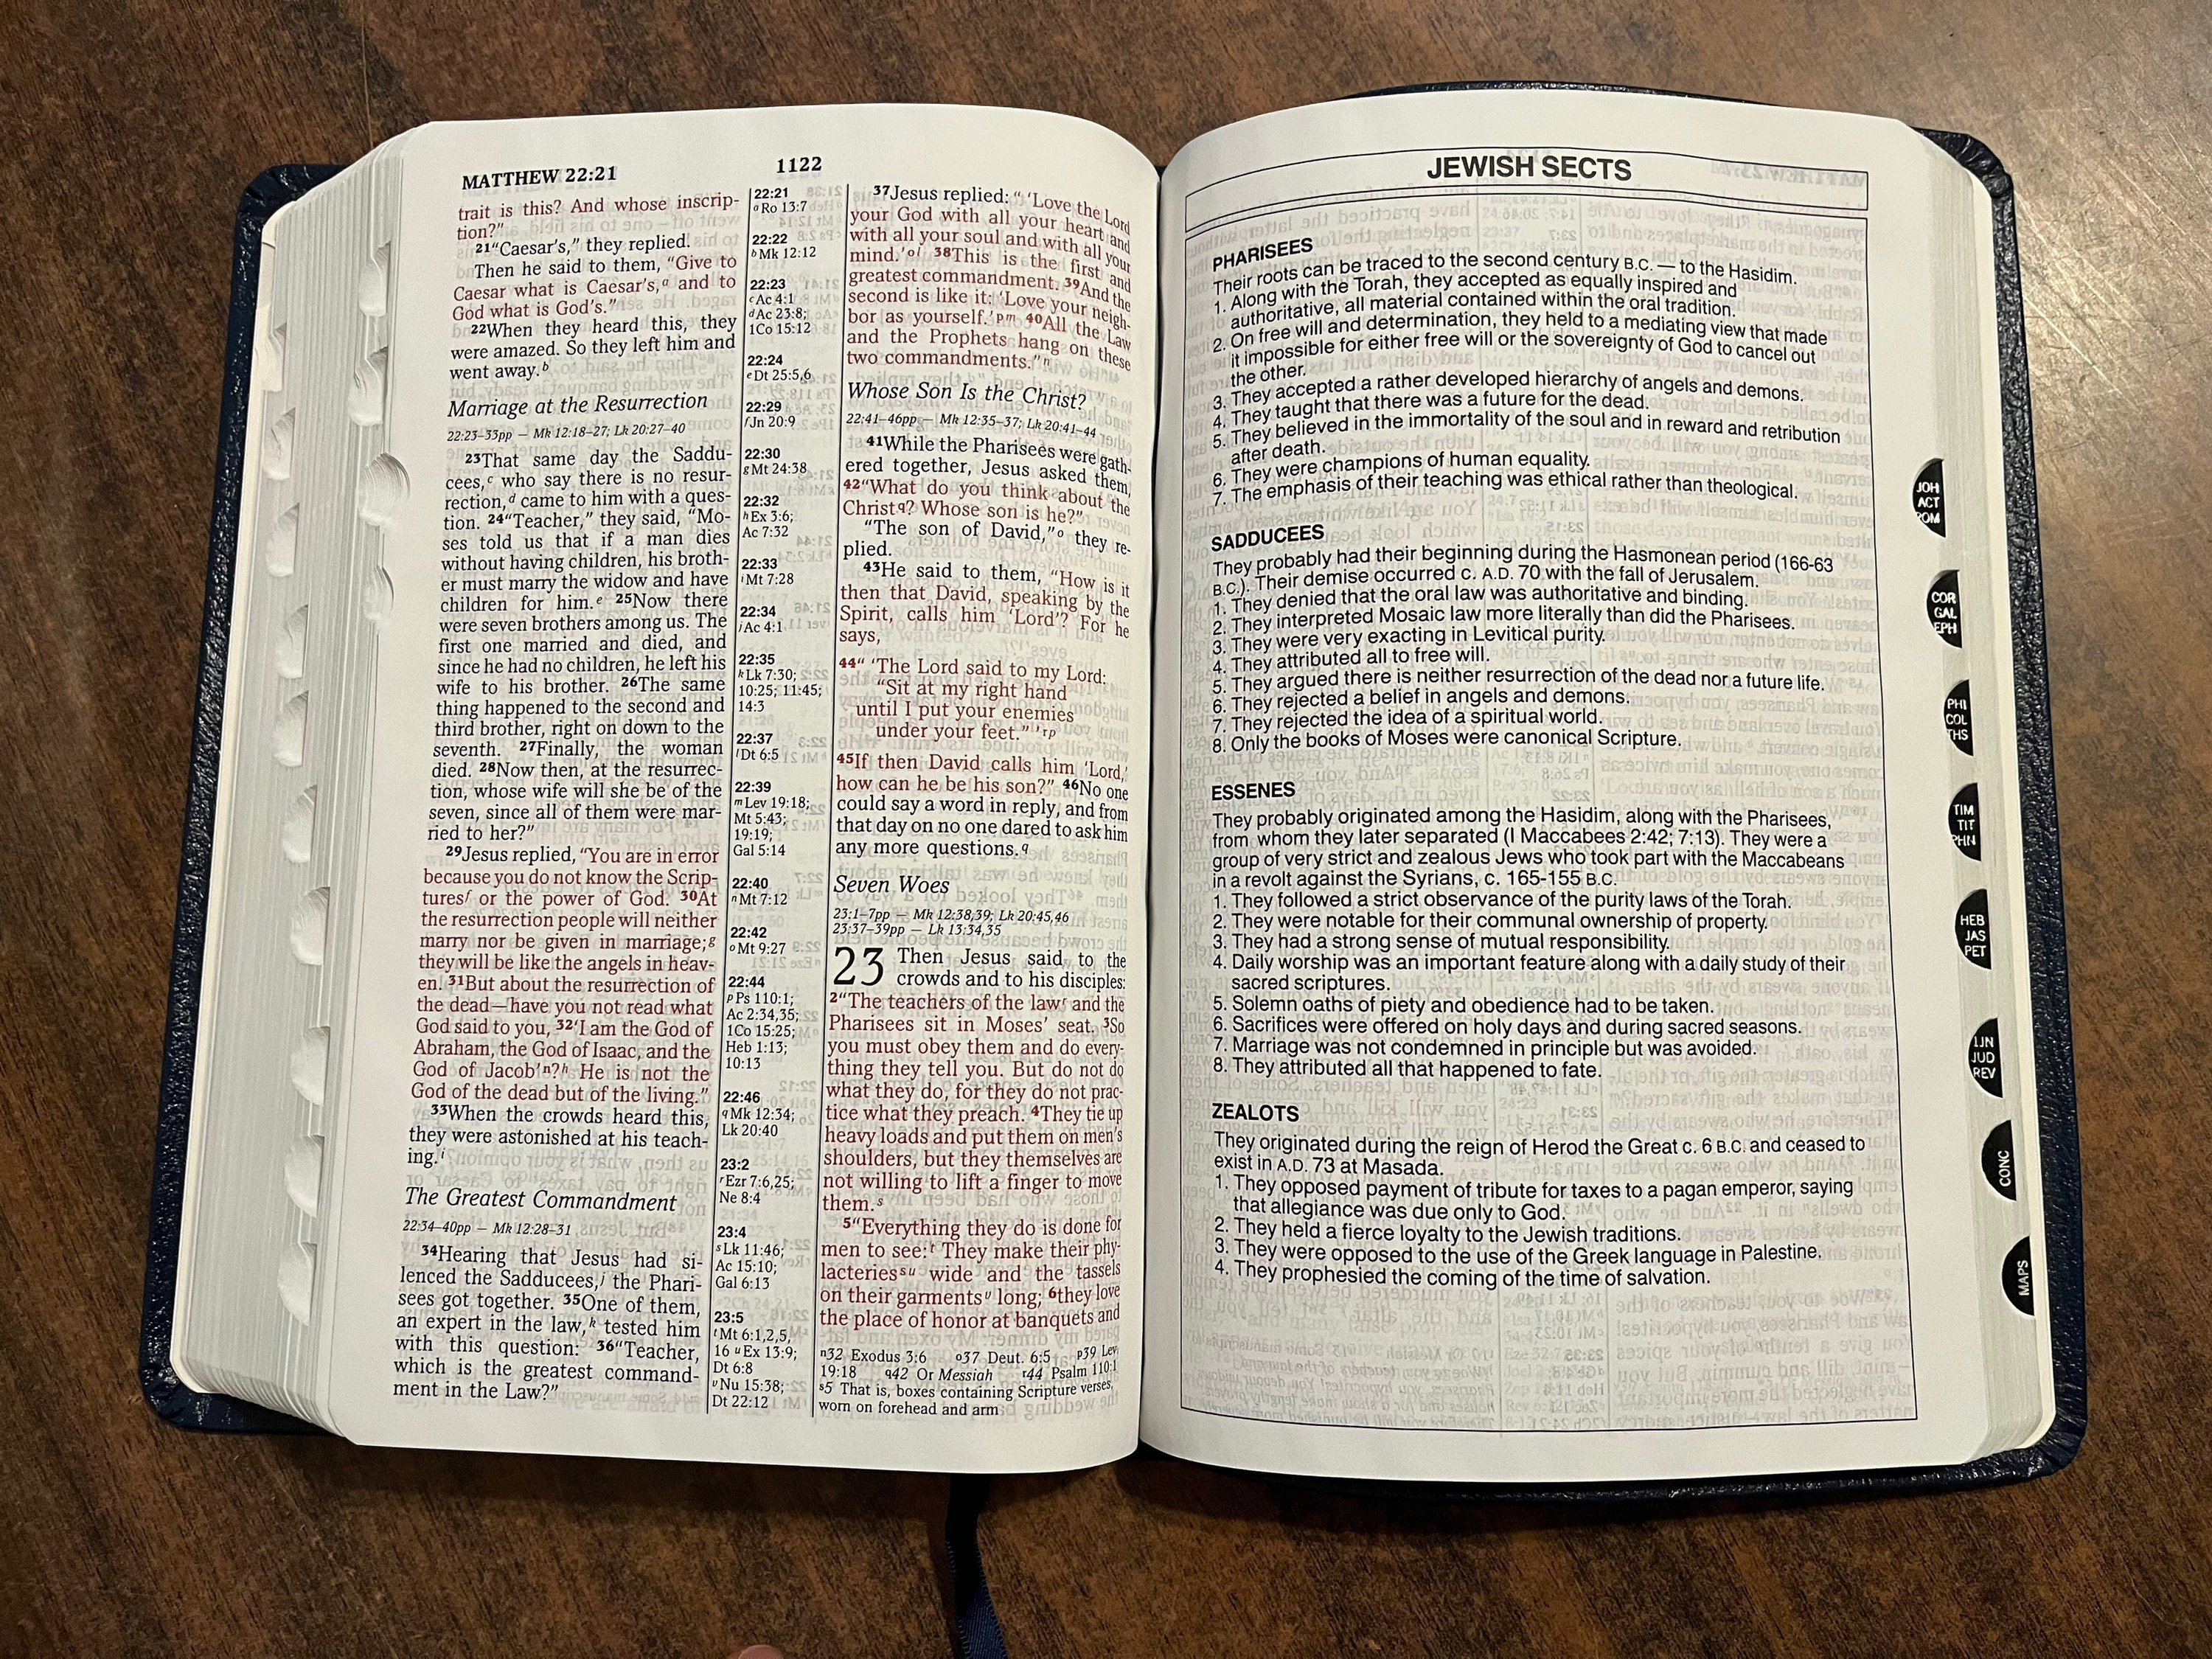 MATTHEW 22:21
1122
trait is this? And whose inscrip-
tion?"
21"Caesar's," they replied.
Then he said to them, "Give to
Caesar what is Caesar's,a and to
God what is God's."
22When they heard this, they
were amazed. So they left him and
went away.b
Marriage at the Resurrection
22:23–33pp — Mk 12:18–27; Lk 20:27–40
23That same day the Saddu-
cees,c who say there is no resur-
rection,d came to him with a ques-
tion. 24"Teacher," they said, "Mo-
ses told us that if a man dies
without having children, his broth-
er must marry the widow and have
children for him.e 25Now there
were seven brothers among us. The
first one married and died, and
since he had no children, he left his
wife to his brother. 26The same
thing happened to the second and
third brother, right on down to the
seventh. 27Finally, the woman
died. 28Now then, at the resurrec-
tion, whose wife will she be of the
seven, since all of them were mar-
ried to her?"
29Jesus replied, "You are in error
because you do not know the Scrip-
turesf or the power of God. 30At
the resurrection people will neither
marry nor be given in marriage;g
they will be like the angels in heav-
en. 31But about the resurrection of
the dead—have you not read what
God said to you, 32'I am the God of
Abraham, the God of Isaac, and the
God of Jacob'n?h He is not the
God of the dead but of the living."
33When the crowds heard this,
they were astonished at his teach-
ing.i
The Greatest Commandment
22:34–40pp — Mk 12:28–31
34Hearing that Jesus had si-
lenced the Sadducees,j the Phari-
sees got together. 35One of them,
an expert in the law,k tested him
with this question: 36"Teacher,
which is the greatest command-
ment in the Law?"
22:21
a Ro 13:7
22:22
b Mk 12:12
22:23
c Ac 4:1
d Ac 23:8;
1Co 15:12
22:24
e Dt 25:5,6
22:29
f Jn 20:9
22:30
g Mt 24:38
22:32
h Ex 3:6;
Ac 7:32
22:33
i Mt 7:28
22:34
j Ac 4:1
22:35
k Lk 7:30;
10:25; 11:45;
14:3
22:37
l Dt 6:5
22:39
m Lev 19:18;
Mt 5:43;
19:19;
Gal 5:14
22:40
n Mt 7:12
22:42
o Mt 9:27
22:44
p Ps 110:1;
Ac 2:34,35;
1Co 15:25;
Heb 1:13;
10:13
22:46
q Mk 12:34;
Lk 20:40
23:2
r Ezr 7:6,25;
Ne 8:4
23:4
s Lk 11:46;
Ac 15:10;
Gal 6:13
23:5
t Mt 6:1,2,5,
16 u Ex 13:9;
Dt 6:8
v Nu 15:38;
Dt 22:12
37Jesus replied: " 'Love the Lord
your God with all your heart and
with all your soul and with all your
mind.'o l 38This is the first and
greatest commandment. 39And the
second is like it: 'Love your neigh-
bor as yourself.'p m 40All the Law
and the Prophets hang on these
two commandments."n
Whose Son Is the Christ?
22:41–46pp — Mk 12:35–37; Lk 20:41–44
41While the Pharisees were gath-
ered together, Jesus asked them,
42"What do you think about the
Christq? Whose son is he?"
"The son of David,"o they re-
plied.
43He said to them, "How is it
then that David, speaking by the
Spirit, calls him 'Lord'? For he
says,
44" 'The Lord said to my Lord:
"Sit at my right hand
until I put your enemies
under your feet." 'r p
45If then David calls him 'Lord,'
how can he be his son?" 46No one
could say a word in reply, and from
that day on no one dared to ask him
any more questions.q
Seven Woes
23:1–7pp — Mk 12:38,39; Lk 20:45,46
23:37–39pp — Lk 13:34,35
23 Then Jesus said to the
crowds and to his disciples:
2"The teachers of the lawr and the
Pharisees sit in Moses' seat. 3So
you must obey them and do every-
thing they tell you. But do not do
what they do, for they do not prac-
tice what they preach. 4They tie up
heavy loads and put them on men's
shoulders, but they themselves are
not willing to lift a finger to move
them.s
5"Everything they do is done for
men to see:t They make their phy-
lacteriess u wide and the tassels
on their garmentsv long; 6they love
the place of honor at banquets and
n32 Exodus 3:6 o37 Deut. 6:5 p39 Lev.
19:18 q42 Or Messiah r44 Psalm 110:1
s5 That is, boxes containing Scripture verses,
worn on forehead and arm
JEWISH SECTS
PHARISEES
Their roots can be traced to the second century B.C. — to the Hasidim.
1. Along with the Torah, they accepted as equally inspired and
authoritative, all material contained within the oral tradition.
2. On free will and determination, they held to a mediating view that made
it impossible for either free will or the sovereignty of God to cancel out
the other.
3. They accepted a rather developed hierarchy of angels and demons.
4. They taught that there was a future for the dead.
5. They believed in the immortality of the soul and in reward and retribution
after death.
6. They were champions of human equality.
7. The emphasis of their teaching was ethical rather than theological.
SADDUCEES
They probably had their beginning during the Hasmonean period (166-63
B.C.). Their demise occurred c. A.D. 70 with the fall of Jerusalem.
1. They denied that the oral law was authoritative and binding.
2. They interpreted Mosaic law more literally than did the Pharisees.
3. They were very exacting in Levitical purity.
4. They attributed all to free will.
5. They argued there is neither resurrection of the dead nor a future life.
6. They rejected a belief in angels and demons.
7. They rejected the idea of a spiritual world.
8. Only the books of Moses were canonical Scripture.
ESSENES
They probably originated among the Hasidim, along with the Pharisees,
from whom they later separated (I Maccabees 2:42; 7:13). They were a
group of very strict and zealous Jews who took part with the Maccabeans
in a revolt against the Syrians, c. 165-155 B.C.
1. They followed a strict observance of the purity laws of the Torah.
2. They were notable for their communal ownership of property.
3. They had a strong sense of mutual responsibility.
4. Daily worship was an important feature along with a daily study of their
sacred scriptures.
5. Solemn oaths of piety and obedience had to be taken.
6. Sacrifices were offered on holy days and during sacred seasons.
7. Marriage was not condemned in principle but was avoided.
8. They attributed all that happened to fate.
ZEALOTS
They originated during the reign of Herod the Great c. 6 B.C. and ceased to
exist in A.D. 73 at Masada.
1. They opposed payment of tribute for taxes to a pagan emperor, saying
that allegiance was due only to God.
2. They held a fierce loyalty to the Jewish traditions.
3. They were opposed to the use of the Greek language in Palestine.
4. They prophesied the coming of the time of salvation.
JOH
ACT
ROM
COR
GAL
EPH
PHI
COL
THS
TIM
TIT
PHN
HEB
JAS
PET
1JN
JUD
REV
CONC
MAPS